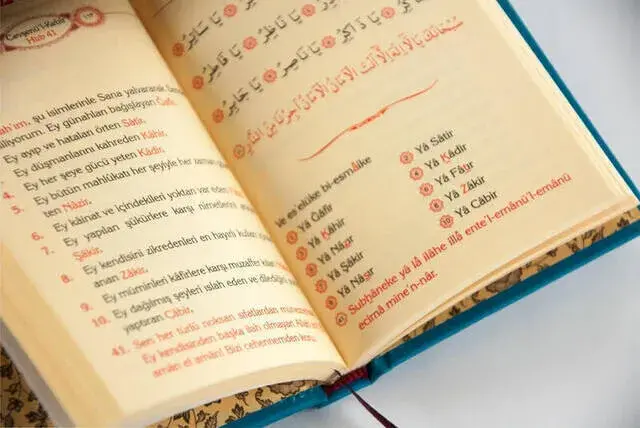 Cevşenü'l-Kebîr
Hizb 41
şu isimlerinle Sana yalvararak
Ey günahları bağışlayan Ğafir,
Ey ayıp ve hataları örten Sâtir,
Ey düşmanlarını kahreden Kâhir,
4. Ey her şeye gücü yeten Kâdir,
5. Ey bütün mahlûkatı her şeyiyle her zaman
ten Nâzir,
6. Ey kâinat ve içindekileri yoktan var eden
7. Ey yapılan şükürlere karşı nimetlerini
Şâkir,
8. Ey kendisini zikredenleri en hayırlı
anan Zâkir,
9. Ey müminleri kâfirlere karşı muzaffer
10. Ey dağılmış şeyleri ıslah eden ve dilediğini
yaptıran Câbir,
41. Sen her türlü noksan sıfatlardan münezzehsin
Ey kendisinden başka ilah olmayan Allah
aman el aman! Bizi cehennemden koru.
يَا نَاظِرُ
يَا ذَاكِرُ يَا نَاصِرُ يَا جَابِرُ
سُبْحَانَكَ يَا لَا إِلٰهَ إِلَّا أَنْتَ الْأَمَانُ الْأَمَانُ أَجِرْنَا مِنَ النَّارِ
Ve es'elüke bi-esmâike
Yâ Ğâfir
Yâ Sâtir
Yâ Kâhir
Yâ Kâdir
Yâ Nâzır
Yâ Fâtır
Yâ Şâkir
Yâ Zâkir
Yâ Nâsır
Yâ Câbir
Subhâneke yâ lâ ilâhe illâ ente'l-emânü'l-emânü
ecirnâ mine'n-nâr.